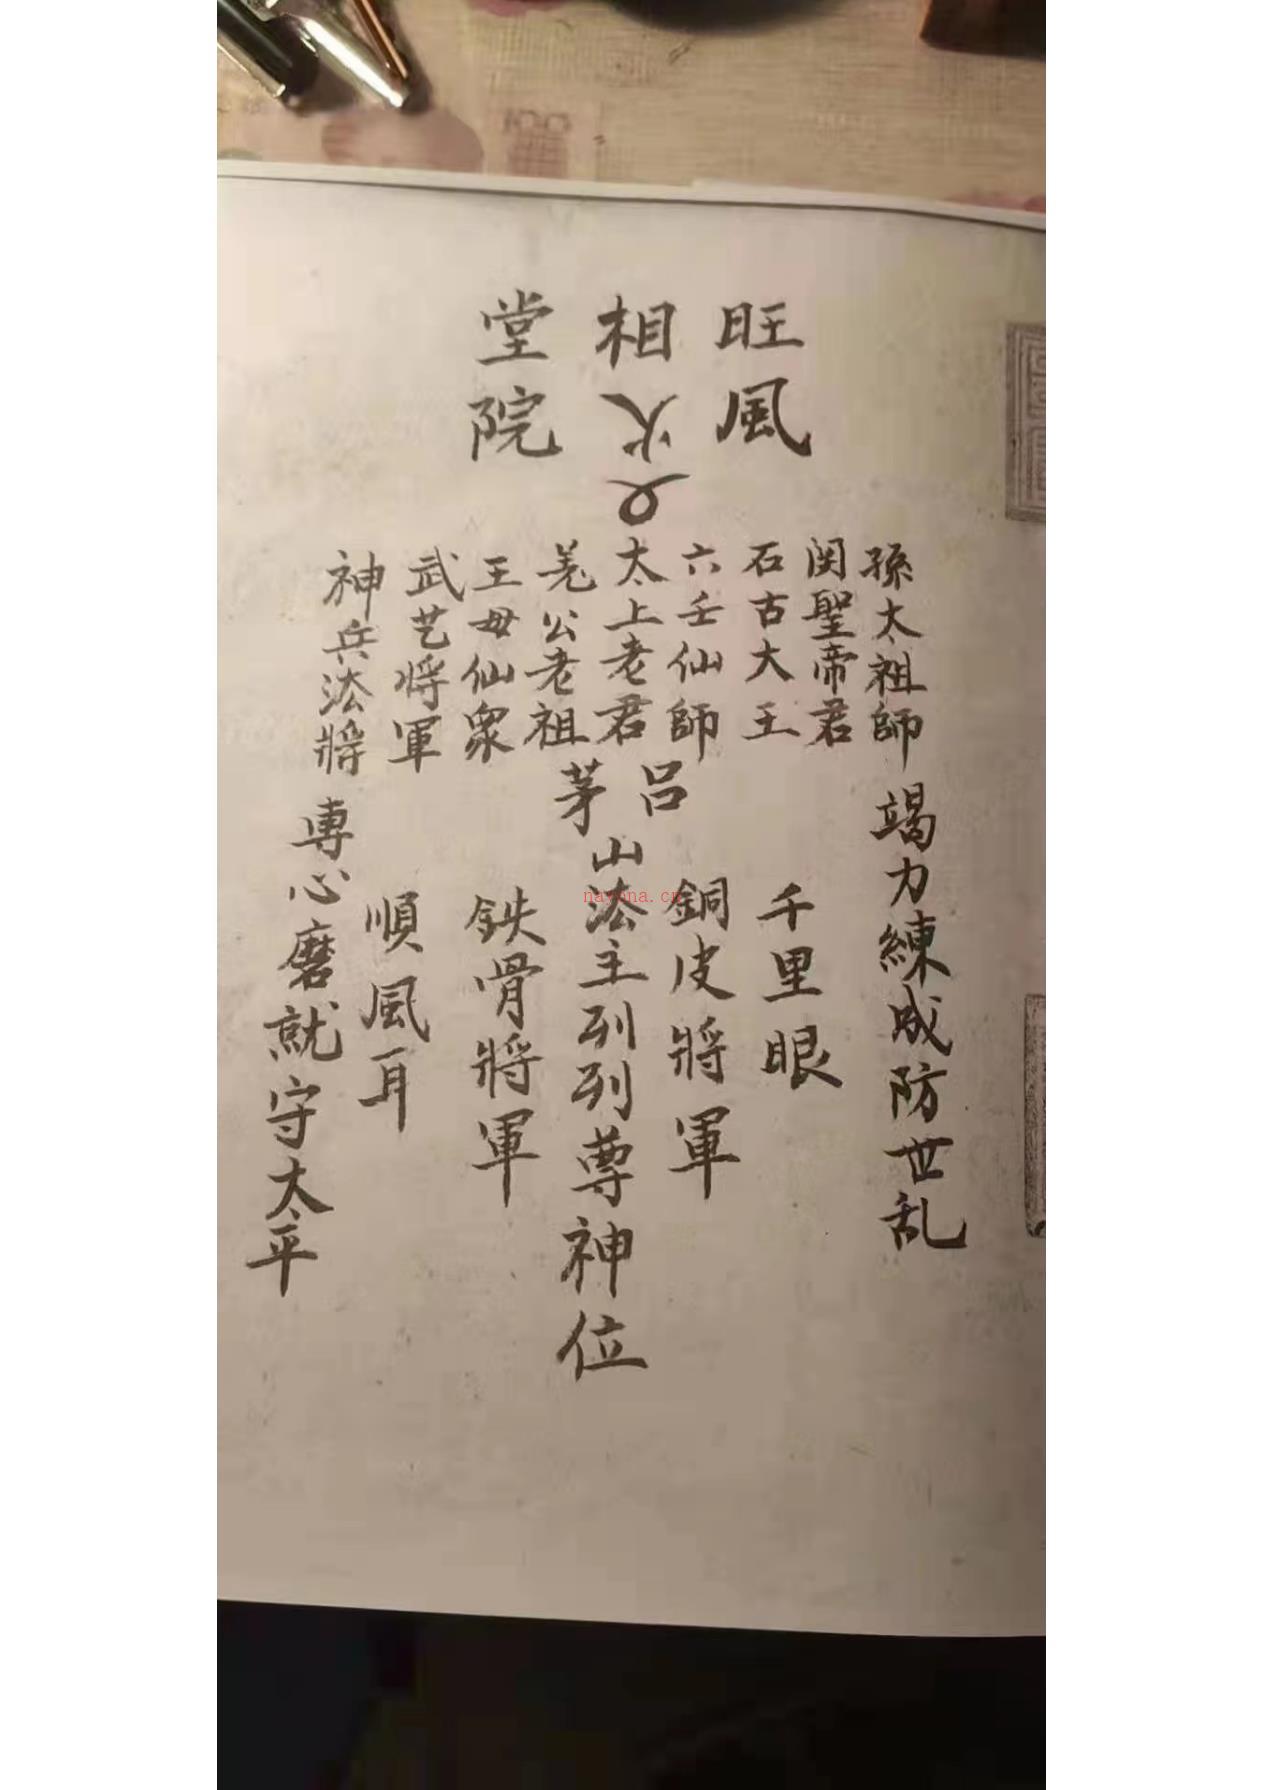 旺風
相火
堂院
孫太祖師
関聖帝君
石古大王
六壬仙師
太上老君
羌公老祖
王母仙眾
武艺将軍
神兵法將
呂
茅
山法主列列尊神位
竭力練成防世乱
千里眼
銅皮將軍
鉄骨將軍
順風耳
専心磨就守太平
nayona.cn
100